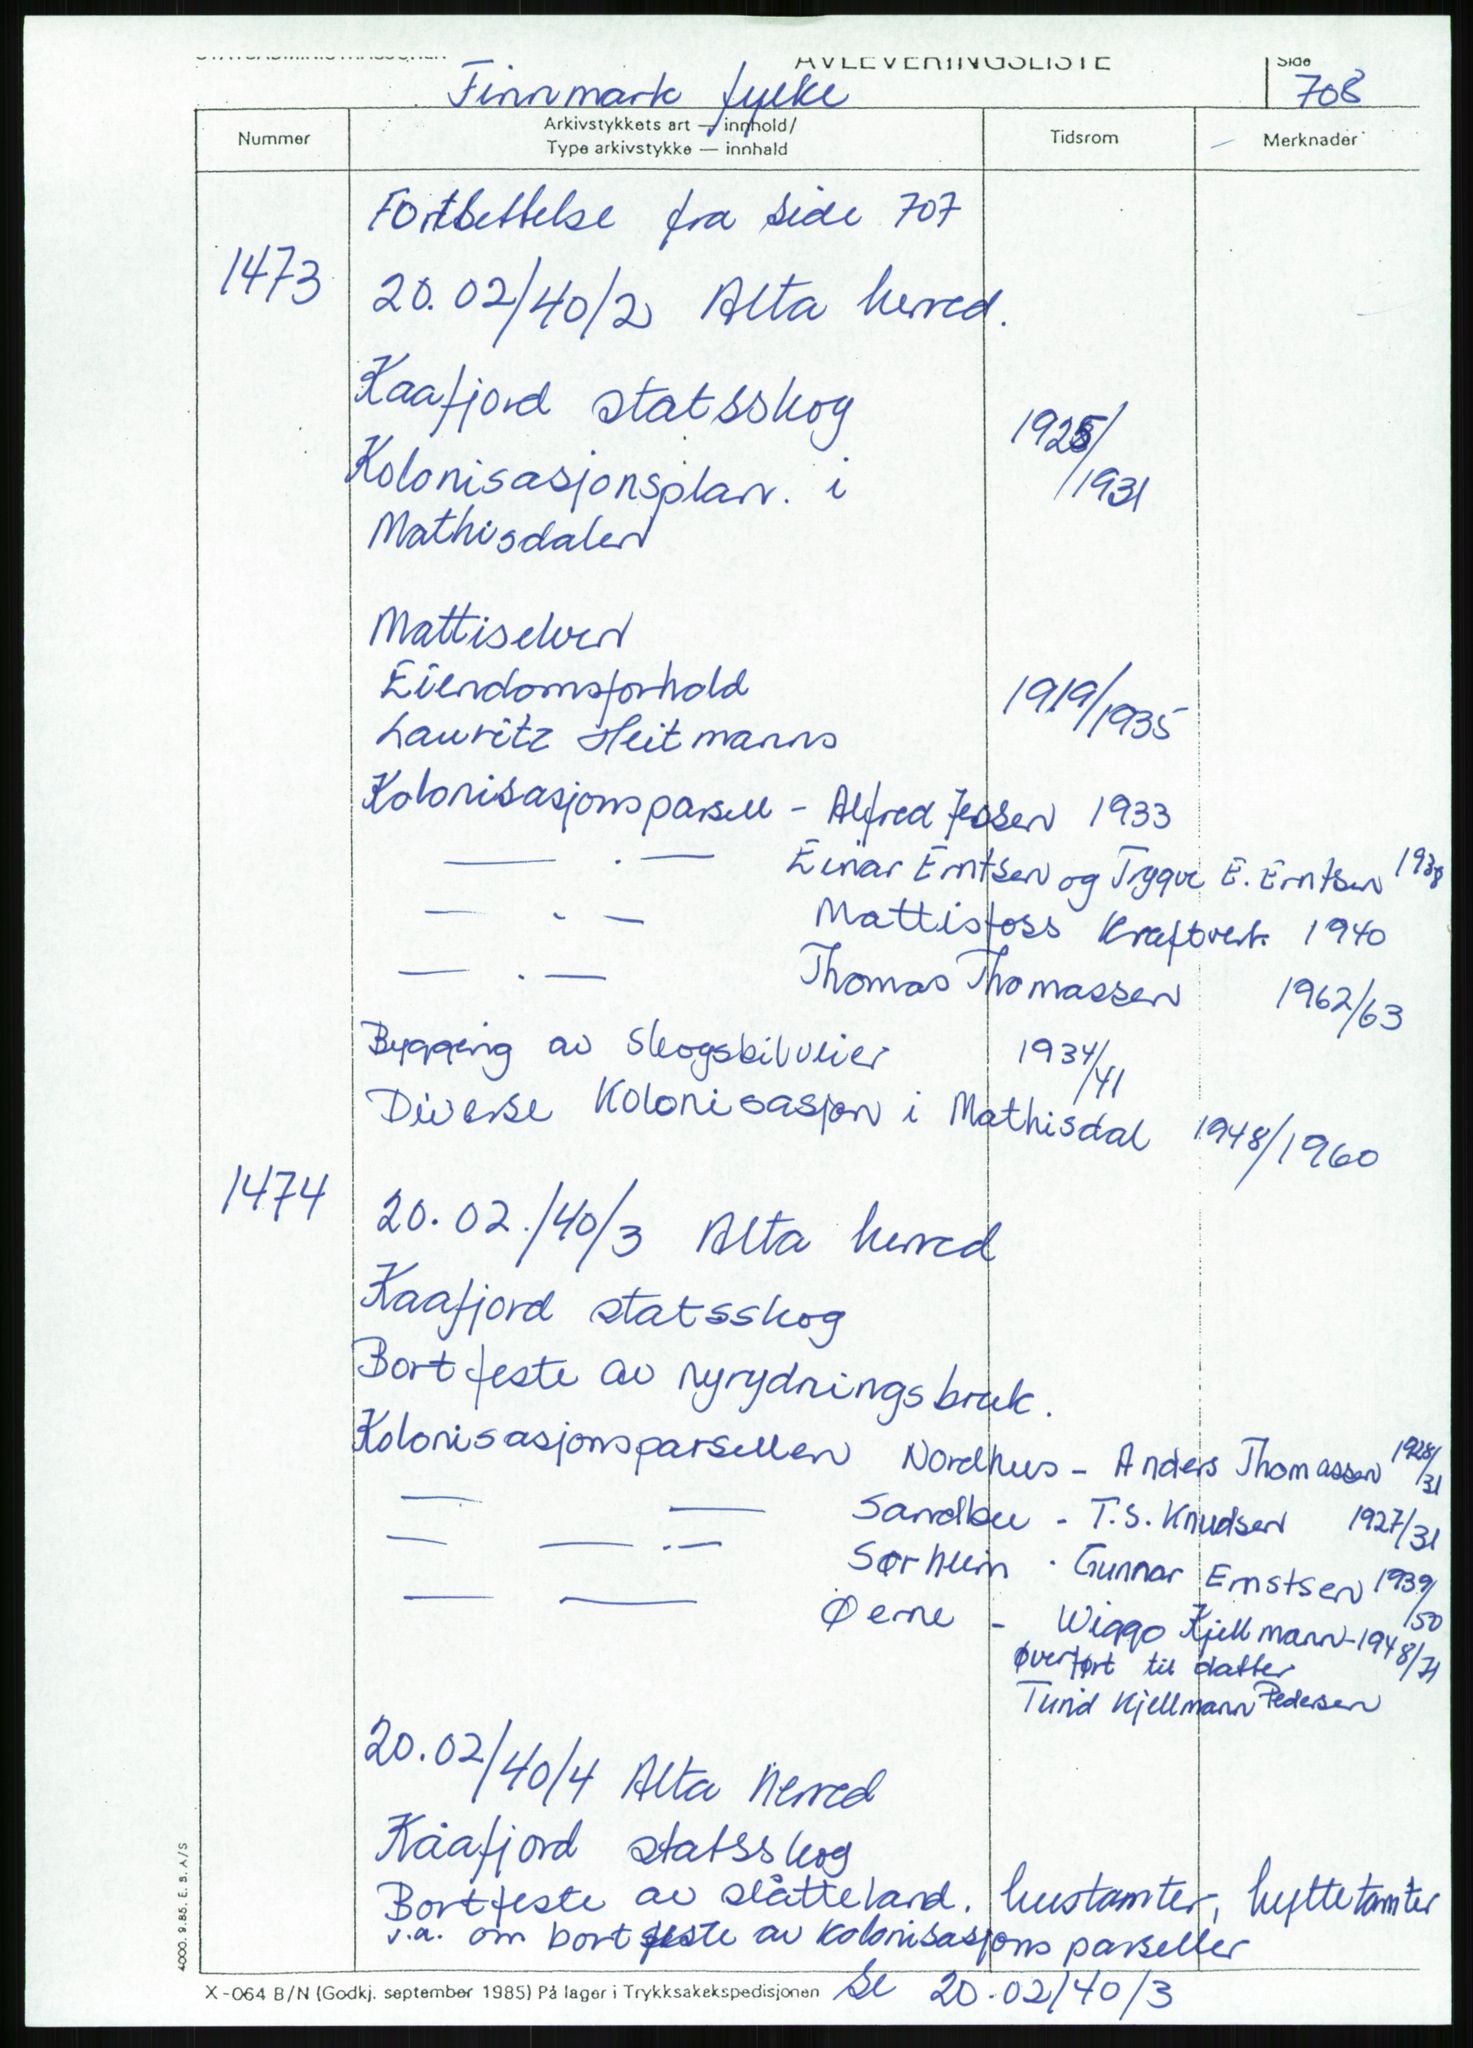 AVLEVERINGSLISTE
Side
Finnmark fylke 708
Nummer
Arkivstykkets art — innhold/
Type arkivstykke — innhald
Tidsrom
Merknader
Fortsettelse fra side 707
1473 20.02/40/2 Alta herred.
Kaafjord statsskog
Kolonisasjonsplan. i 1925/1931
Mathisdalen
Mattiselven
Eiendomsforhold 1919/1935
Lauritz Heitmanns
Kolonisasjonsparsell - Alfred Jessen 1933
— . — Einar Erntsen og Trygve E. Erntsen 1938
— . — Mattisfoss Kraftverk 1940
— . — Thomas Thomassen 1962/63
Bygging av skogsbilveier 1934/41
Diverse Kolonisasjon i Mathisdal 1948/1960
1474 20.02./40/3 Alta herred
Kaafjord statsskog
Bortfeste av nyrydningsbruk.
Kolonisasjonsparsellen Nordhus - Anders Thomassen 1928/31
— — Sandbu - T.S. Knudsen 1927/31
— — . — Sørheim . Gunnar Ernstsen 1939/50
— — Øerne - Wiggo Kjellmann - 1948/71
overført til datter
Turid Kjellmann Pedersen
20.02/40/4 Alta Herred
Kåafjord statsskog
Bortfeste av slåtteland. hustomter, hyttetomter
v.a. om bortfeste av Kolonisasjonsparseller
Se 20.02/40/3
4000. 9.85. E. B. A/S
X-064 B/N (Godkj. september 1985) På lager i Trykksakekspedisjonen